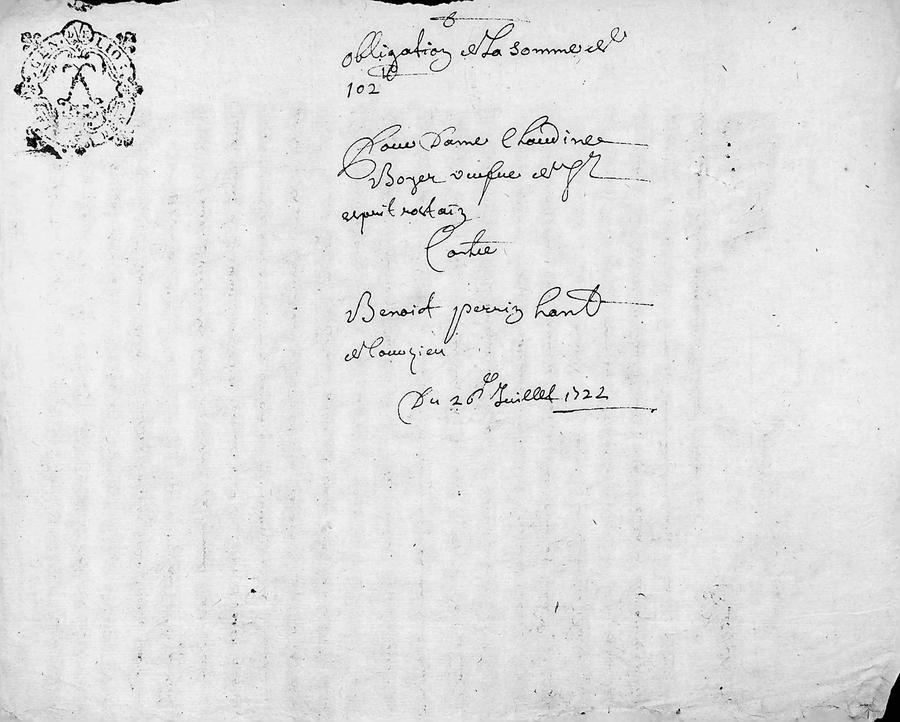 obligation de La somme de
102 ₶
Pour Dame Claudine
Boyer veufve de Sr
esprit rostaiz
Contre
Benoict perrin hant
Du 26e Juillet 1722